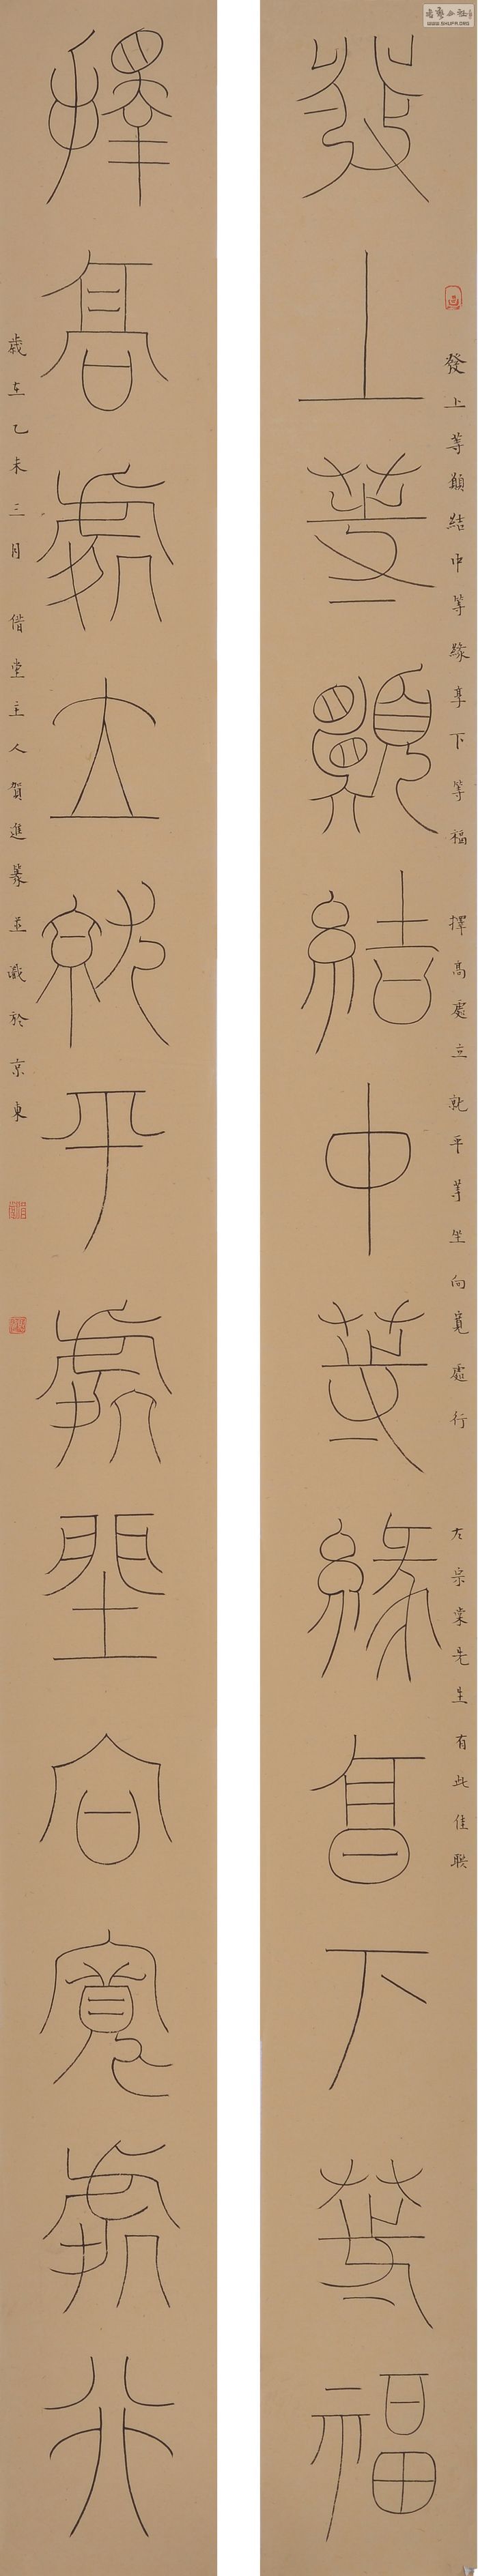 WWW.SHUFA.ORG
發上等願結中等緣享下等福 擇高處立就平等坐向寬處行 左宗棠先生有此佳聯
發上等願結中等緣享下等福
擇高處立就平處坐向寬處行
歲在乙未三月 借堂主人賀進篆並識於京東